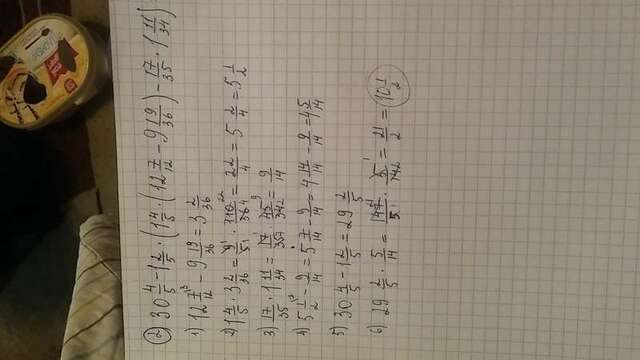 2) 30 4/5 - 1 2/5 · (1 4/5 · (12 7/12 - 9 19/36) - 17/35 · 1 11/34)
1) 12 7/12 - 9 19/36 = 3 2/36
2) 1 4/5 · 3 2/36 = 9/5 · 110/36 = 22/4 = 5 2/4 = 5 1/2
3) 17/35 · 1 11/34 = 17/35 · 45/34 = 9/14
4) 5 1/2 - 9/14 = 5 7/14 - 9/14 = 4 14/14 - 9/14 = 4 5/14
5) 30 4/5 - 1 2/5 = 29 2/5
6) 29 2/5 · 5/14 = 147/5 · 5/14 = 21/2 = 10 1/2